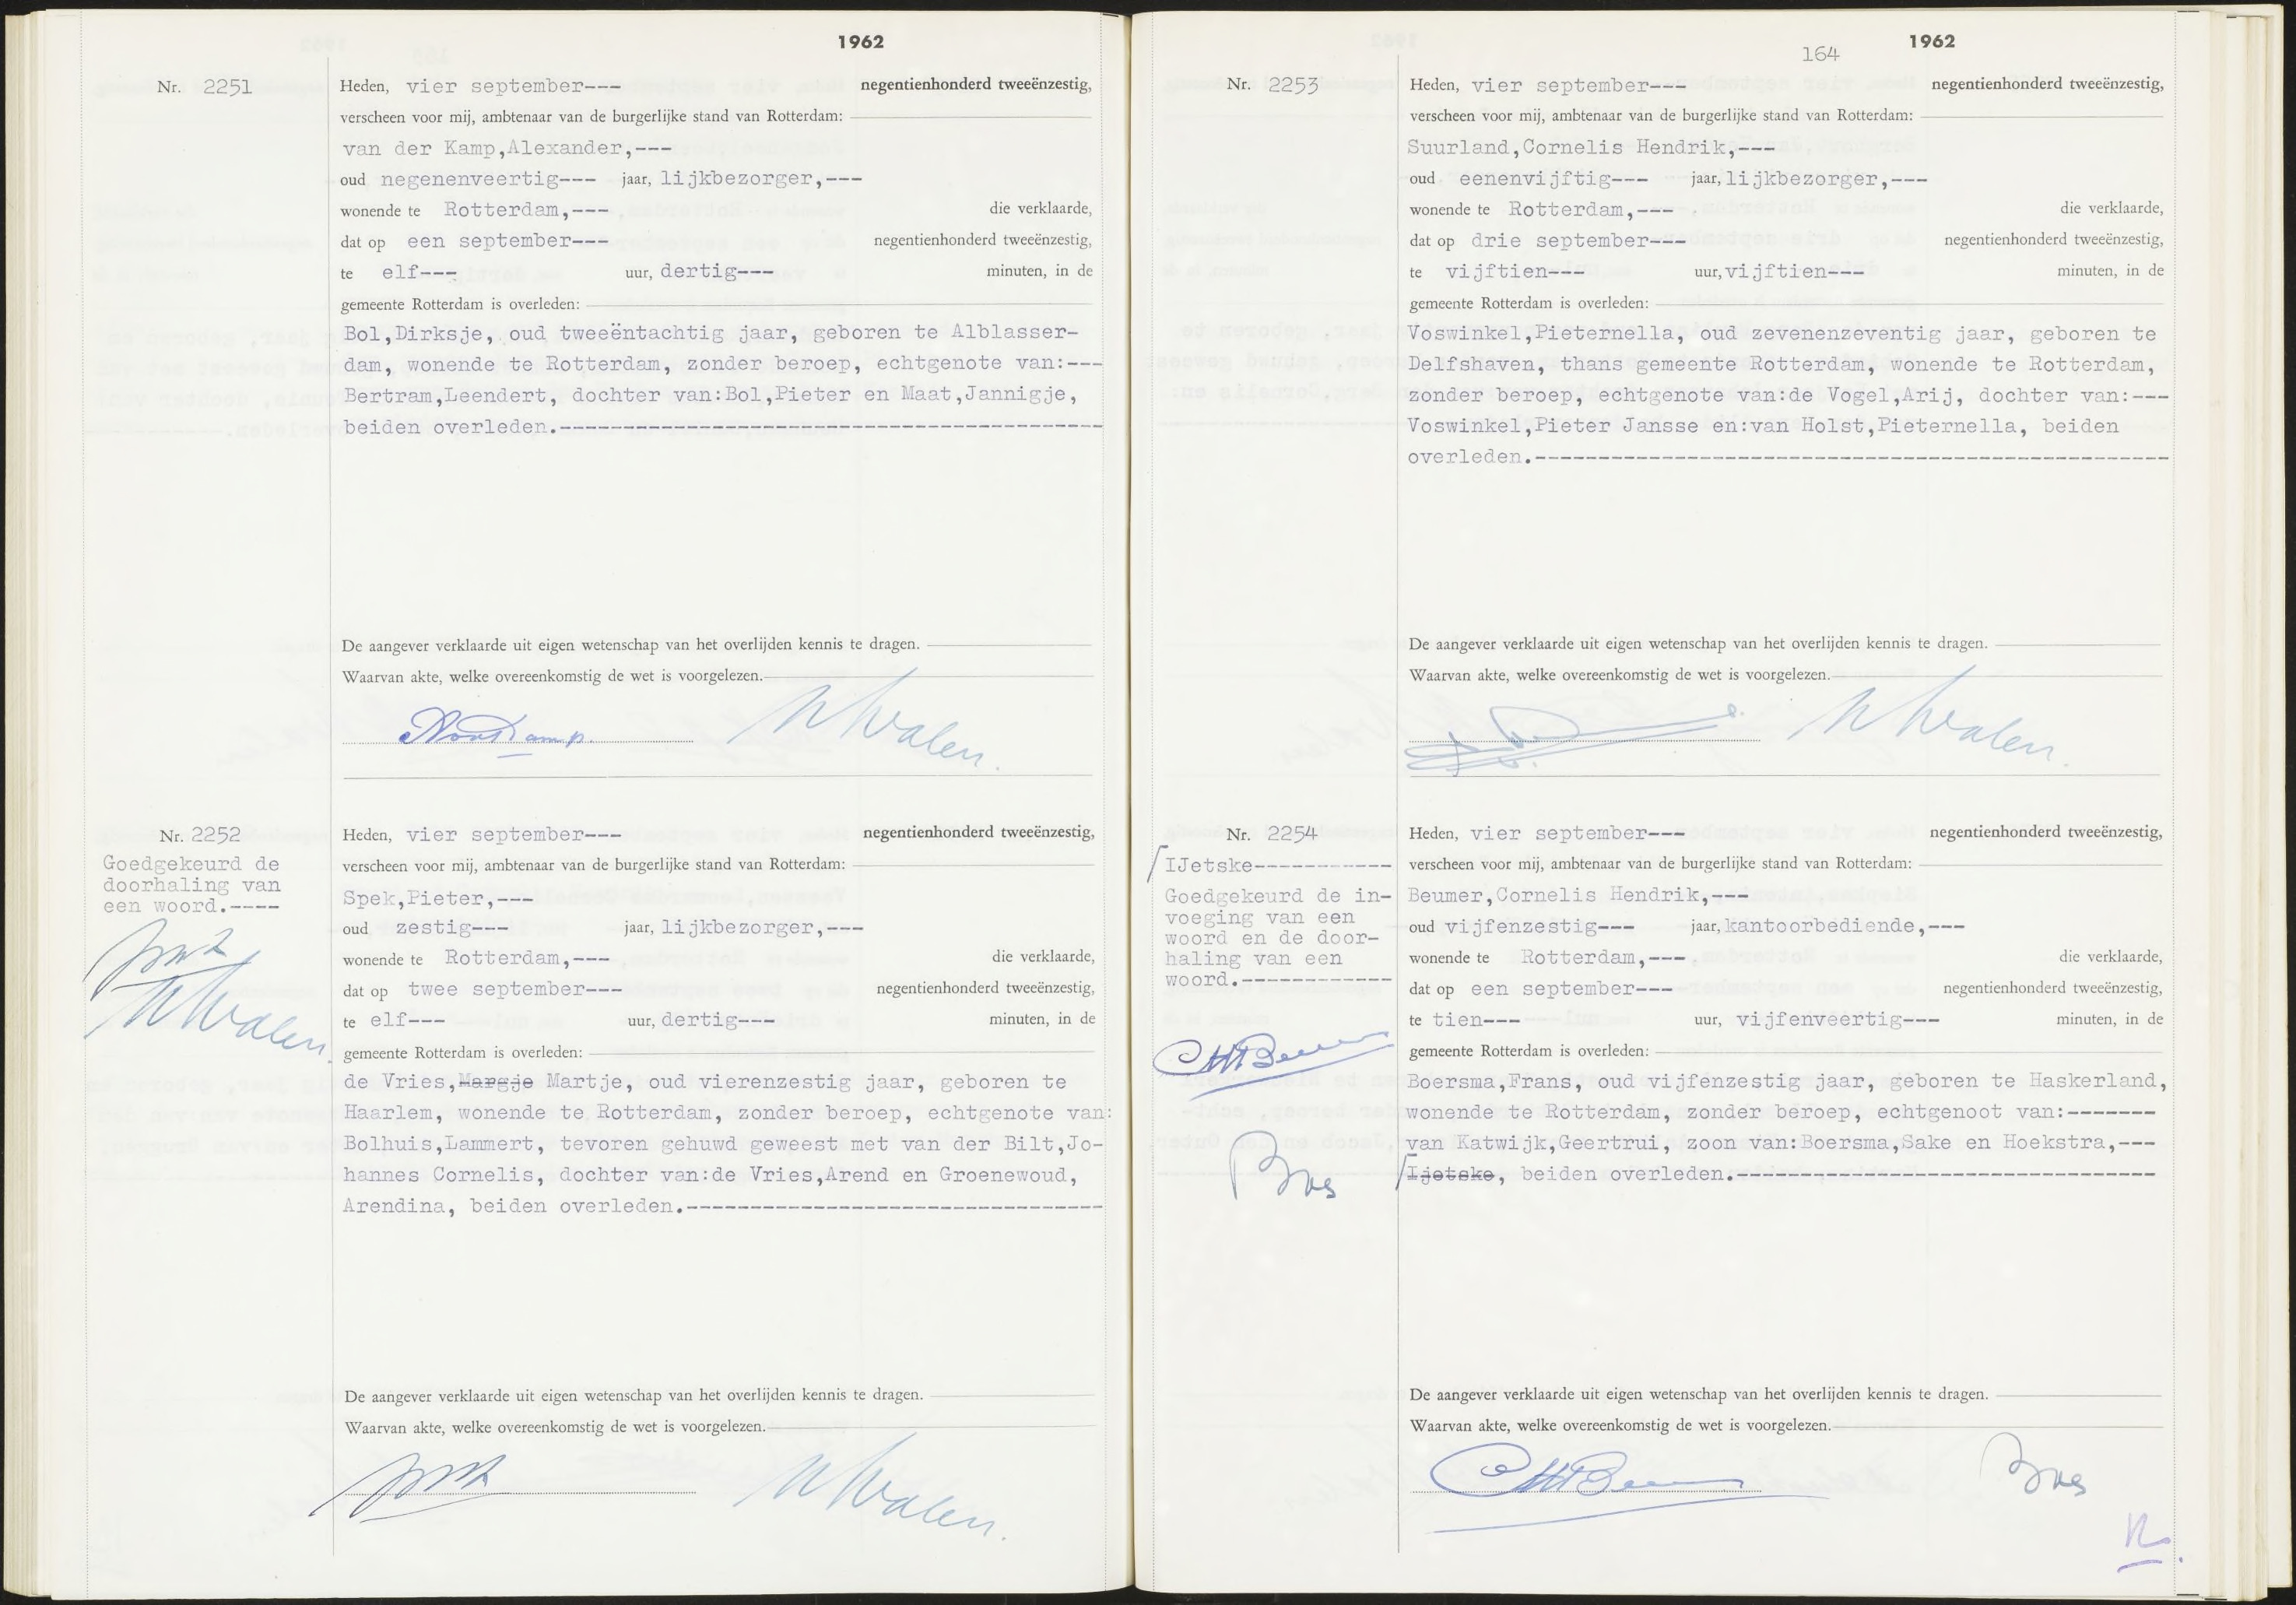 1962
Nr. 2251
Heden, vier september--- negentienhonderd tweeënzestig,
verscheen voor mij, ambtenaar van de burgerlijke stand van Rotterdam:
van der Kamp,Alexander,---
oud negenenveertig--- jaar, lijkbezorger,---
wonende te Rotterdam,--- die verklaarde,
dat op een september--- negentienhonderd tweeënzestig,
te elf--- uur, dertig--- minuten, in de
gemeente Rotterdam is overleden:
Bol,Dirksje, oud tweeëntachtig jaar, geboren te Alblasser-
dam, wonende te Rotterdam, zonder beroep, echtgenote van:---
Bertram,Leendert, dochter van:Bol,Pieter en Maat,Jannigje,
beiden overleden.-------------------------------------------
De aangever verklaarde uit eigen wetenschap van het overlijden kennis te dragen.
Waarvan akte, welke overeenkomstig de wet is voorgelezen.
Nr. 2252
Goedgekeurd de
doorhaling van
een woord.----
Heden, vier september--- negentienhonderd tweeënzestig,
verscheen voor mij, ambtenaar van de burgerlijke stand van Rotterdam:
Spek,Pieter,---
oud zestig--- jaar, lijkbezorger,---
wonende te Rotterdam,--- die verklaarde,
dat op twee september--- negentienhonderd tweeënzestig,
te elf--- uur, dertig--- minuten, in de
gemeente Rotterdam is overleden:
de Vries,Margje Martje, oud vierenzestig jaar, geboren te
Haarlem, wonende te Rotterdam, zonder beroep, echtgenote van:
Bolhuis,Lammert, tevoren gehuwd geweest met van der Bilt,Jo-
hannes Cornelis, dochter van:de Vries,Arend en Groenewoud,
Arendina, beiden overleden.---------------------------------
De aangever verklaarde uit eigen wetenschap van het overlijden kennis te dragen.
Waarvan akte, welke overeenkomstig de wet is voorgelezen.
164
1962
Nr. 2253
Heden, vier september--- negentienhonderd tweeënzestig,
verscheen voor mij, ambtenaar van de burgerlijke stand van Rotterdam:
Suurland,Cornelis Hendrik,---
oud eenenvijftig--- jaar, lijkbezorger,---
wonende te Rotterdam,--- die verklaarde,
dat op drie september--- negentienhonderd tweeënzestig,
te vijftien--- uur, vijftien--- minuten, in de
gemeente Rotterdam is overleden:
Voswinkel,Pieternella, oud zevenenzeventig jaar, geboren te
Delfshaven, thans gemeente Rotterdam, wonende te Rotterdam,
zonder beroep, echtgenote van:de Vogel,Arij, dochter van:---
Voswinkel,Pieter Jansse en:van Holst,Pieternella, beiden
overleden.--------------------------------------------------
De aangever verklaarde uit eigen wetenschap van het overlijden kennis te dragen.
Waarvan akte, welke overeenkomstig de wet is voorgelezen.
Nr. 2254
IJetske-----------
Goedgekeurd de in-
voeging van een
woord en de door-
haling van een
woord.------------
Heden, vier september--- negentienhonderd tweeënzestig,
verscheen voor mij, ambtenaar van de burgerlijke stand van Rotterdam:
Beumer,Cornelis Hendrik,---
oud vijfenzestig--- jaar, kantoorbediende,---
wonende te Rotterdam,--- die verklaarde,
dat op een september--- negentienhonderd tweeënzestig,
te tien--- uur, vijfenveertig--- minuten, in de
gemeente Rotterdam is overleden:
Boersma,Frans, oud vijfenzestig jaar, geboren te Haskerland,
wonende te Rotterdam, zonder beroep, echtgenoot van:-------
van Katwijk,Geertrui, zoon van:Boersma,Sake en Hoekstra,---
Ijetske, beiden overleden.---------------------------------
De aangever verklaarde uit eigen wetenschap van het overlijden kennis te dragen.
Waarvan akte, welke overeenkomstig de wet is voorgelezen.